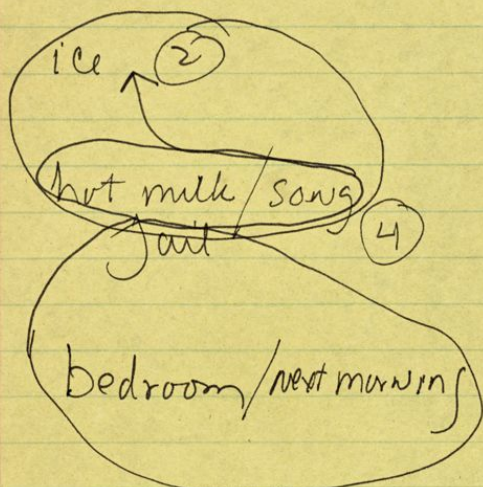 ice 2
hot milk / song
Jail 4
bedroom / next morning